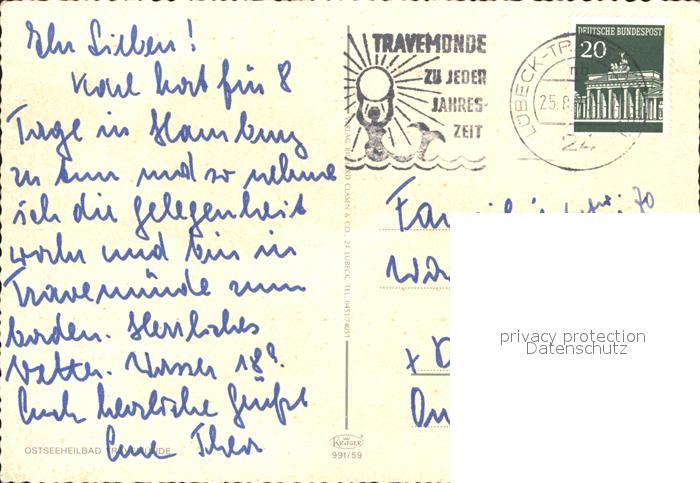 Ihr Lieben!
Karl hat für 8
Tage in Hamburg
zu tun und so nehme
ich die gelegenheit
wahr und bin in
Travemünde zum
baden. Herrliches
Wetter. Wasser 18°.
Euch herzliche Grüße
Eure Thea
OSTSEEHEILBAD TRAVEMÜNDE
TRAVEMÜNDE
ZU JEDER
JAHRES-
ZEIT
LÜBECK-TR
25.8
24
DEUTSCHE BUNDESPOST
20
CLASEN & CO., 24 LÜBECK, TEL. 0451/74051
KRÜGER
991/59
70
privacy protection
Datenschutz